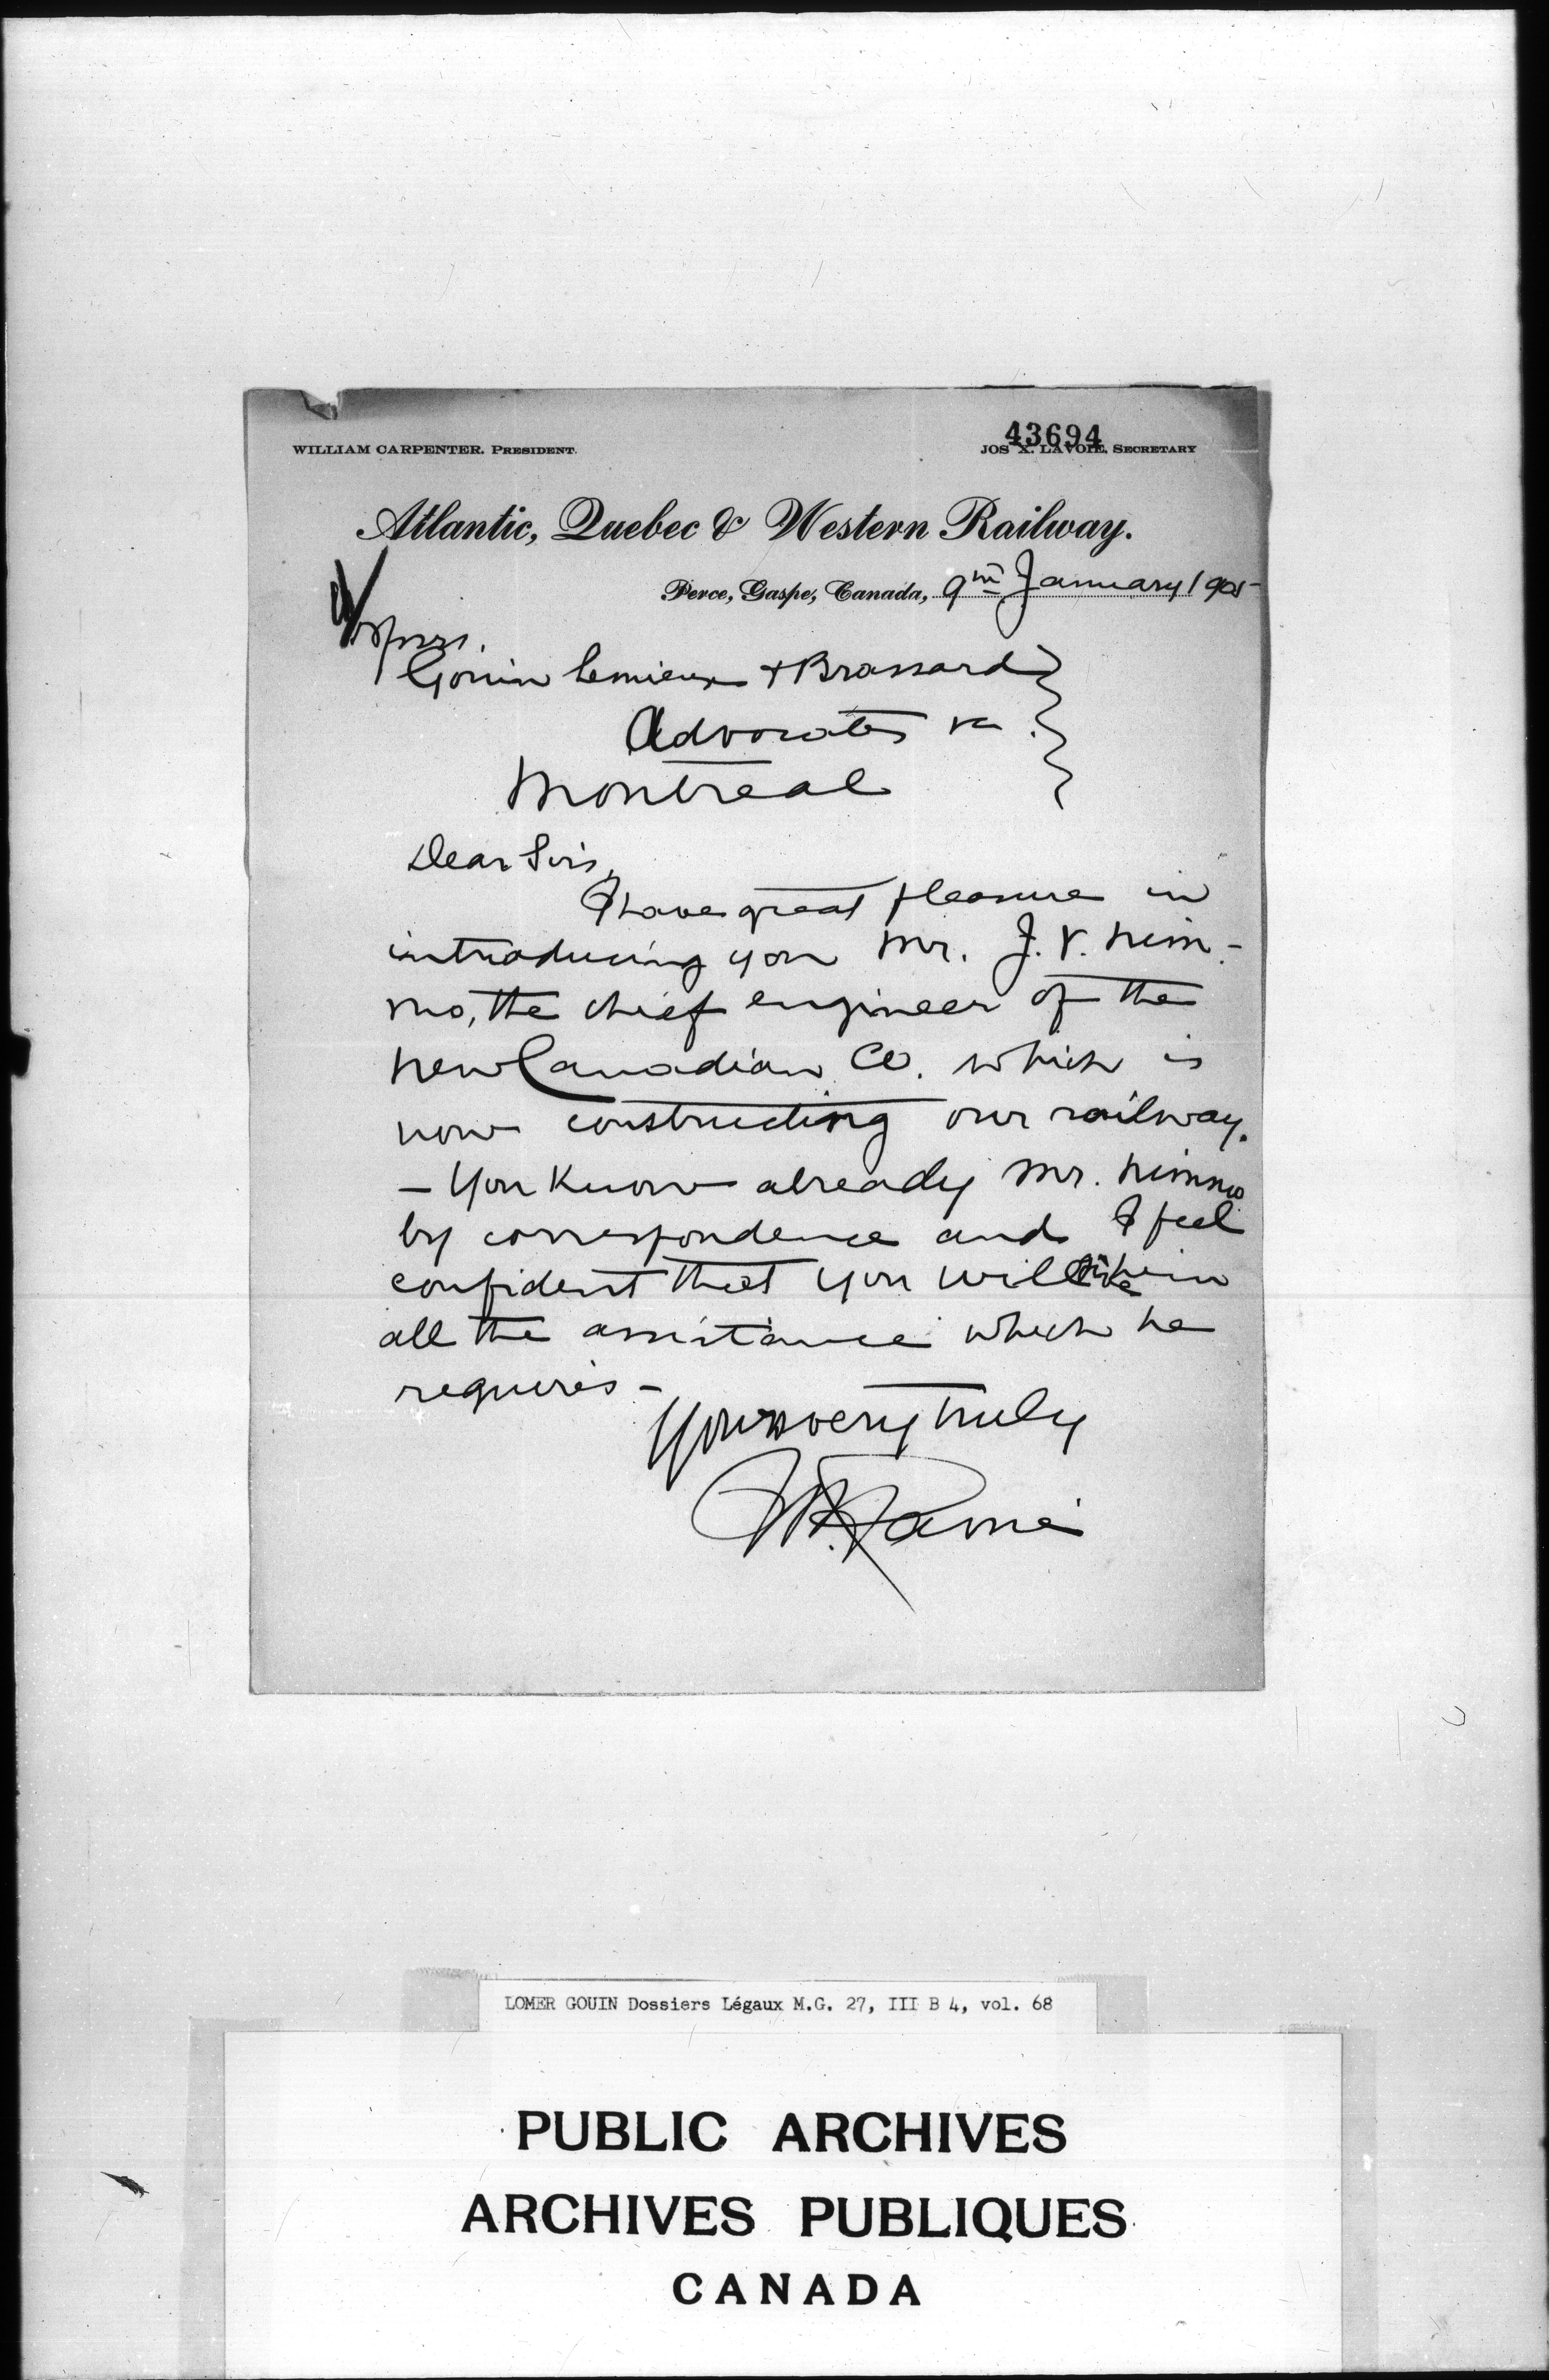 43694
WILLIAM CARPENTER. PRESIDENT. JOS X. LAVOIE, SECRETARY
Atlantic, Quebec & Western Railway.
Perce, Gaspe, Canada, 9th January 1905
Messrs.
Gouin Lemieux + Brassard
Advocates &c.
Montreal
Dear Sirs,
I have great pleasure in
introducing you Mr. J. V. Nim-
mo, the chief engineer of the
New Canadian Co. which is
now constructing our railway.
- You know already Mr. Nimmo
by correspondence and I feel
confident that you will give him
all the assistance which he
requires -
Yours very truly
LOMER GOUIN Dossiers Légaux M.G. 27, III B 4, vol. 68
PUBLIC ARCHIVES
ARCHIVES PUBLIQUES
CANADA